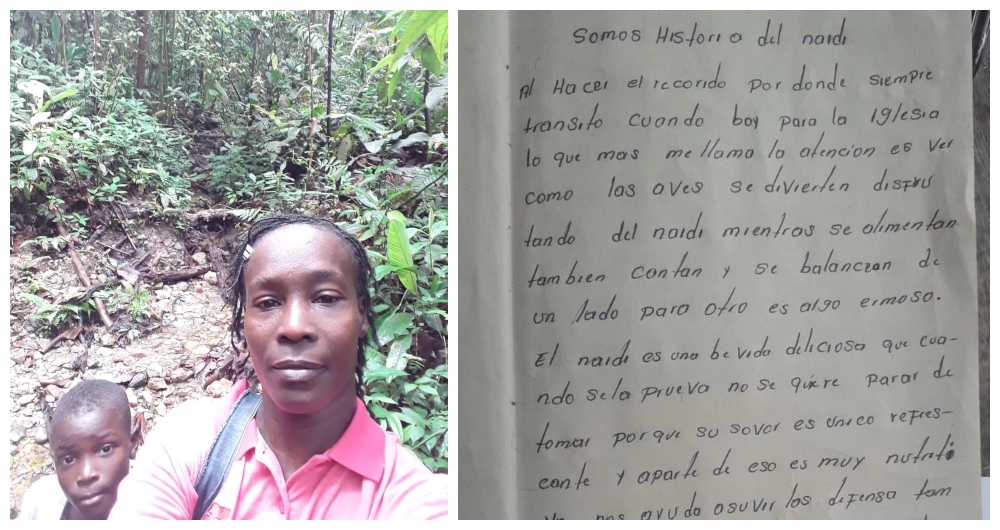 Somos Historia del naidi
Al Hacer el recorido por donde siempre
transito cuando boy para la Iglesia
lo que mas me llama la atencion es ver
como las aves se divierten disfru
tando del naidi mientras se alimentan
tambien cantan y se balancean de
un lado para otro es algo ermoso.
El naidi es una bevida deliciosa que cua-
ndo se la prueva no se quiere parar de
tomar porque su savor es unico refres-
cante y aparte de eso es muy nutriti
nos ayuda a suvir las defensa tam